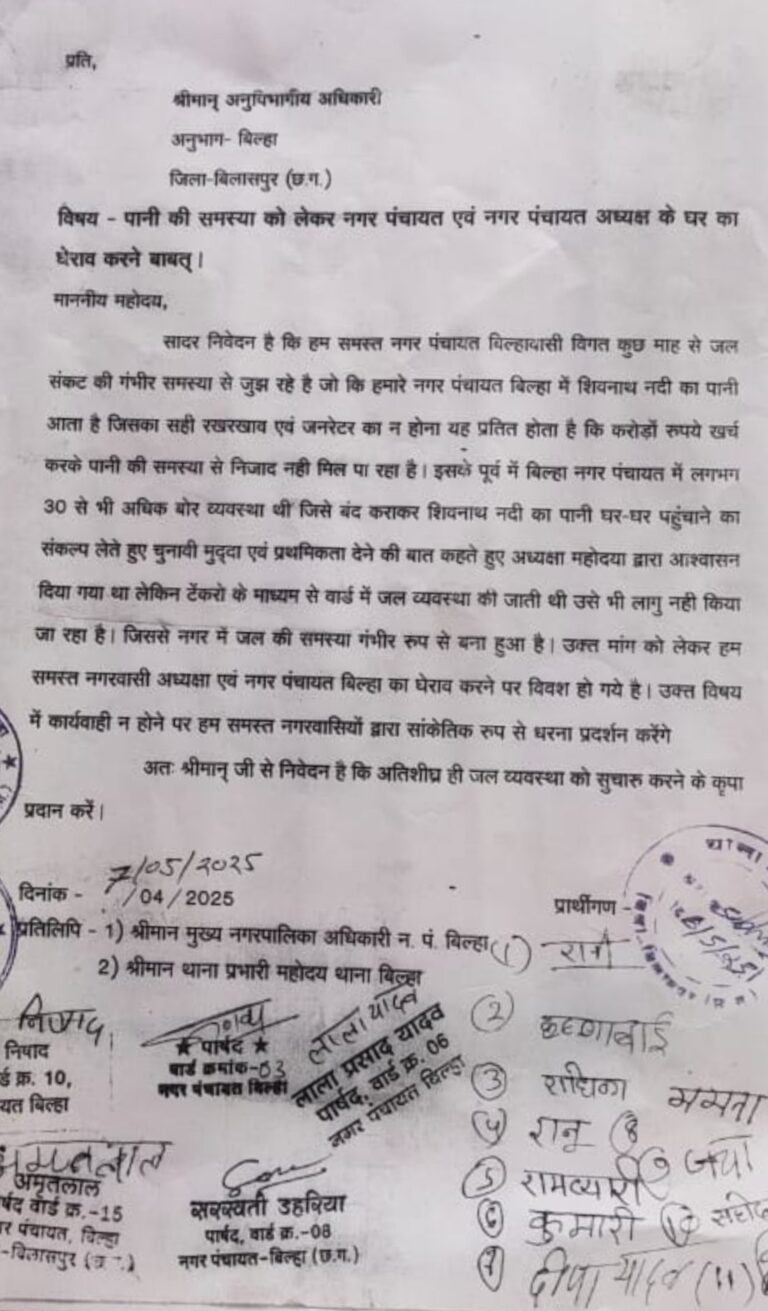 प्रति,
श्रीमान् अनुविभागीय अधिकारी
अनुभाग- बिल्हा
जिला-बिलासपुर (छ.ग.)
विषय - पानी की समस्या को लेकर नगर पंचायत एवं नगर पंचायत अध्यक्ष के घर का
घेराव करने बाबत् ।
माननीय महोदय,
सादर निवेदन है कि हम समस्त नगर पंचायत बिल्हावासी विगत कुछ माह से जल
संकट की गंभीर समस्या से जुझ रहे है जो कि हमारे नगर पंचायत बिल्हा में शिवनाथ नदी का पानी
आता है जिसका सही रखरखाव एवं जनरेटर का न होना यह प्रतित होता है कि करोड़ों रुपये खर्च
करके पानी की समस्या से निजाद नही मिल पा रहा है। इसके पूर्व में बिल्हा नगर पंचायत में लगभग
30 से भी अधिक बोर व्यवस्था थी जिसे बंद कराकर शिवनाथ नदी का पानी घर-घर पहुंचाने का
संकल्प लेते हुए चुनावी मुद्दा एवं प्रथमिकता देने की बात कहते हुए अध्यक्षा महोदया द्वारा आश्वासन
दिया गया था लेकिन टेंकरो के माध्यम से वार्ड में जल व्यवस्था की जाती थी उसे भी लागु नही किया
जा रहा है। जिससे नगर में जल की समस्या गंभीर रुप से बना हुआ है। उक्त मांग को लेकर हम
समस्त नगरवासी अध्यक्षा एवं नगर पंचायत बिल्हा का घेराव करने पर विवश हो गये है। उक्त विषय
में कार्यवाही न होने पर हम समस्त नगरवासियों द्वारा सांकेतिक रुप से धरना प्रदर्शन करेंगे
अतः श्रीमान् जी से निवेदन है कि अतिशीघ्र ही जल व्यवस्था को सुचारु करने के कृपा
प्रदान करें।
7/05/2025
दिनांक - /04/2025
प्रार्थीगण -
थाना
प्रतिलिपि - 1) श्रीमान मुख्य नगरपालिका अधिकारी न. पं. बिल्हा
2) श्रीमान थाना प्रभारी महोदय थाना बिल्हा
(1)
(2)
(3) राधिका ममता
(4) रानू (8)
(5) रामप्यारी (9) जया
(6) कुमारी (10)
(7) दीपा यादव (11)
निषाद
निषाद
र्ड क्र. 10,
यत बिल्हा
★ पार्षद ★
वार्ड क्रमांक-03
नगर पंचायत बिल्हा
लाला यादव
लाला प्रसाद यादव
पार्षद, वार्ड क्र. 06
नगर पंचायत बिल्हा
अमृतलाल
अमृतलाल
र्षद वार्ड क्र.-15
र पंचायत, बिल्हा
-बिलासपुर
सरस्वती डहरिया
पार्षद, वार्ड क्र.-08
नगर पंचायत-बिल्हा (छ.ग.)